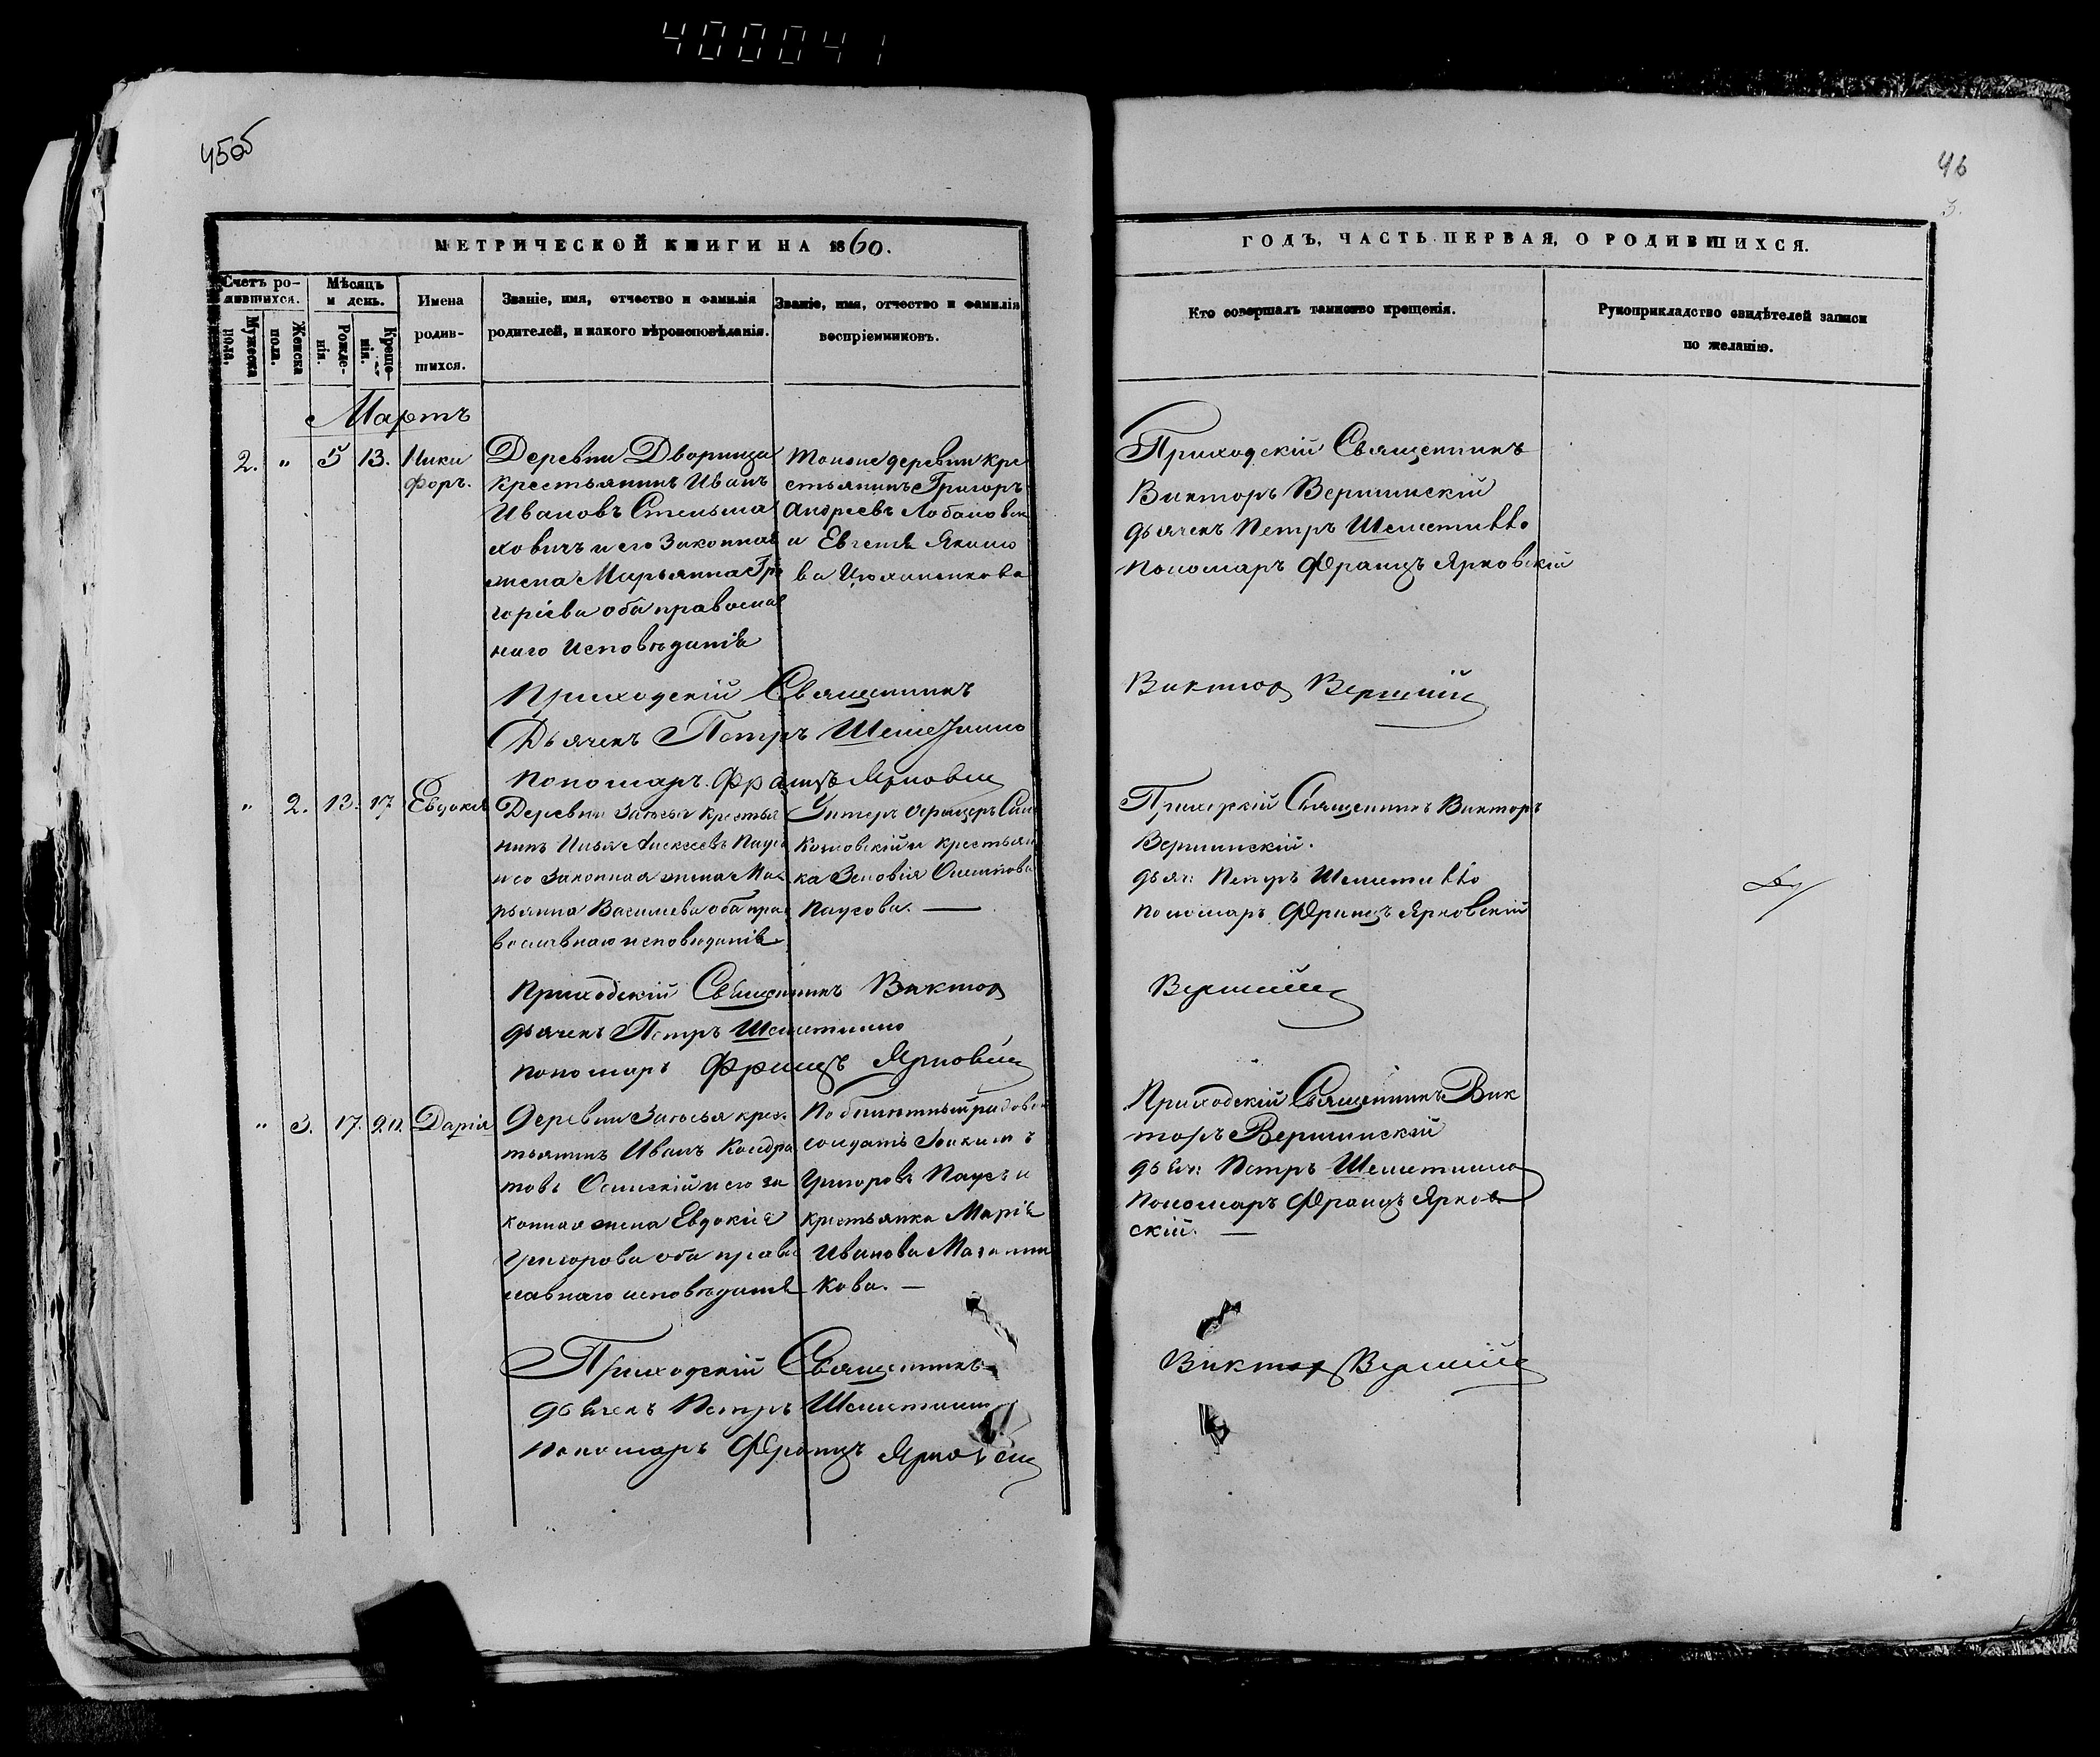 400041
45об
46
3.
МЕТРИЧЕСКОЙ КНИГИ НА 1860.
ГОДЪ, ЧАСТЬ ПЕРВАЯ, О РОДИВШИХСЯ.
Счетъ ро-
дившихся.
Мужеска
пола.
Женска
пола.
Мѣсяцъ
и день.
Рожде-
нія.
Креще-
нія.
Имена
родив-
шихся.
Званіе, имя, отчество и фамилія
родителей, и какого вѣроисповѣданія.
Званіе, имя, отчество и фамилія
воспріемниковъ.
Кто совершалъ таинство крещенія.
Рукоприкладство свидѣтелей записи
по желанію.
Мартъ
2. " 5 13. Ники
форъ.
Деревни Дворища
крестьянинъ Иванъ
Ивановъ Стельма
ховичъ и его законная
жена Марьянна Гри
горіева оба православ
наго исповѣданія
Тойже деревни кре
стьянинъ Григоръ
Андреевъ Лобановск
и Евгенія Якимо
ва
Приходскій Священникъ
Викторъ Вершинскій
дьячекъ Петръ Шеметилло
пономаръ Францъ Ярковскій
Приходскій Священникъ
Дьячекъ Петръ Шеметилло
пономаръ Францъ Ярковскій
Викторъ Вершинскій
" 2. 13. 17 Евдокія
Деревни Заюсья крестья
нинъ Илья Алексеевъ Паус
и его законная жена Ма
рьянна Васильева оба пра
вославнаго исповѣданія.
Унтеръ офицеръ
Козловскій и крестьян
ка Зеновія
Паусова. —
Приходскій Священникъ Викторъ
Вершинскій.
дьяч: Петръ Шеметилло
пономаръ Францъ Ярковскій
Приходскій Священникъ Викторъ
дьячекъ Петръ Шеметилло
пономаръ Францъ Ярковскій
Вершинскій
" 3. 17. 20. Дарія
Деревни Заюсья крес
тьянинъ Иванъ Кондра
товъ Осинскій и его за
конная жена Евдокія
Григорова оба право
славнаго исповѣданія
солдатъ Іоакимъ
Григоровъ Паусъ и
крестьянка Марія
Иванова
кова. —
Приходскій Священникъ Вик
торъ Вершинскій
дьяч: Петръ Шеметилло
пономаръ Францъ Ярков
скій. —
Приходскій Священникъ
дьячекъ Петръ Шеметилло
пономаръ Францъ Ярковскій
Викторъ Вершинскій